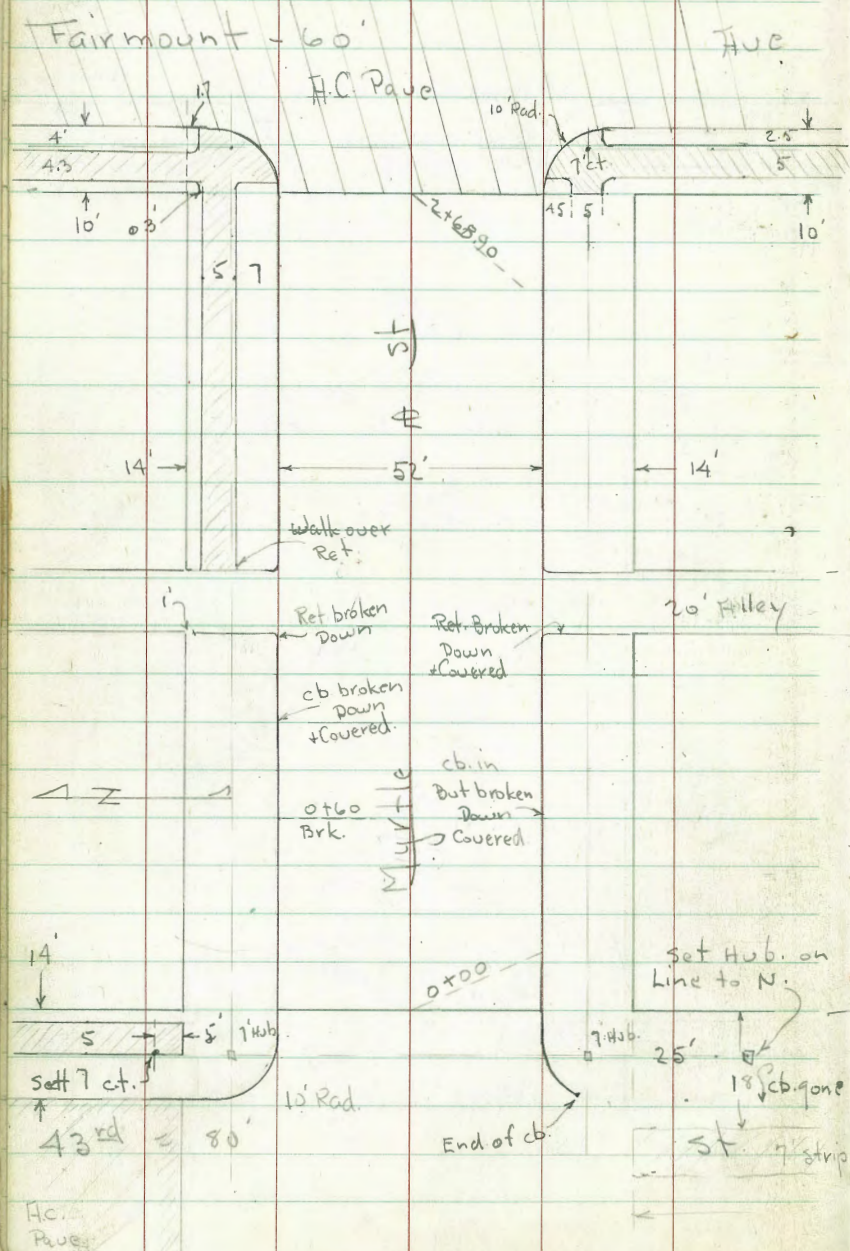 Fairmount - 60' Ave
A.C. Pave
1.7
10' Rad.
4'
4.3
7' ct.
2.5
5
10'
0.3'
4.5 5
10'
2+68.90
5 7
St
14'
52'
14'
Walk over
Ret.
1'
20' Alley
Ret broken
Down
Ret. Broken
Down
+Covered
cb broken
Down
+Covered.
cb. in
But broken
Down
Covered
N
0+60
Brk.
Myrtle
14'
0+00
Set Hub. on
Line to N.
5
5'
7' Hub
7' Hub.
25'
Sett 7 c.t.
18'
cb. gone
10' Rad.
End of cb.
43rd = 80'
St.
7' strip
A.C.
Pave.